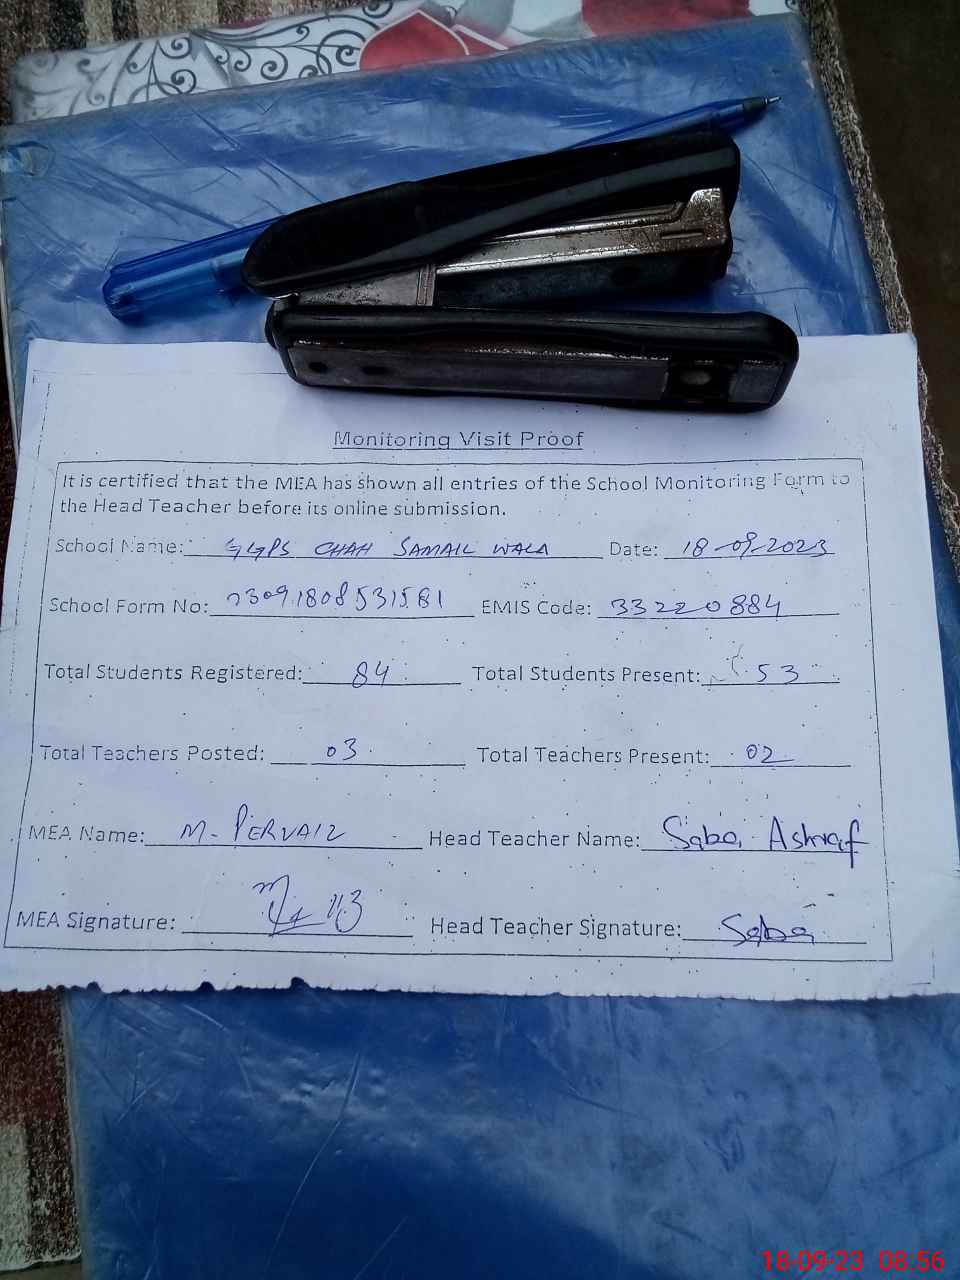 Monitoring Visit Proof
It is certified that the MEA has shown all entries of the School Monitoring Form to
the Head Teacher before its online submission.
School Name: GGPS CHAH SAMAIL WALA Date: 18-09-2023
School Form No: 23091808531581 EMIS Code: 33220884
Total Students Registered: 84 Total Students Present: 53
Total Teachers Posted: 03 Total Teachers Present: 02
MEA Name: M. PERVAIZ Head Teacher Name: Saba Ashraf
MEA Signature: Head Teacher Signature: Saba
18-09-23 08:56